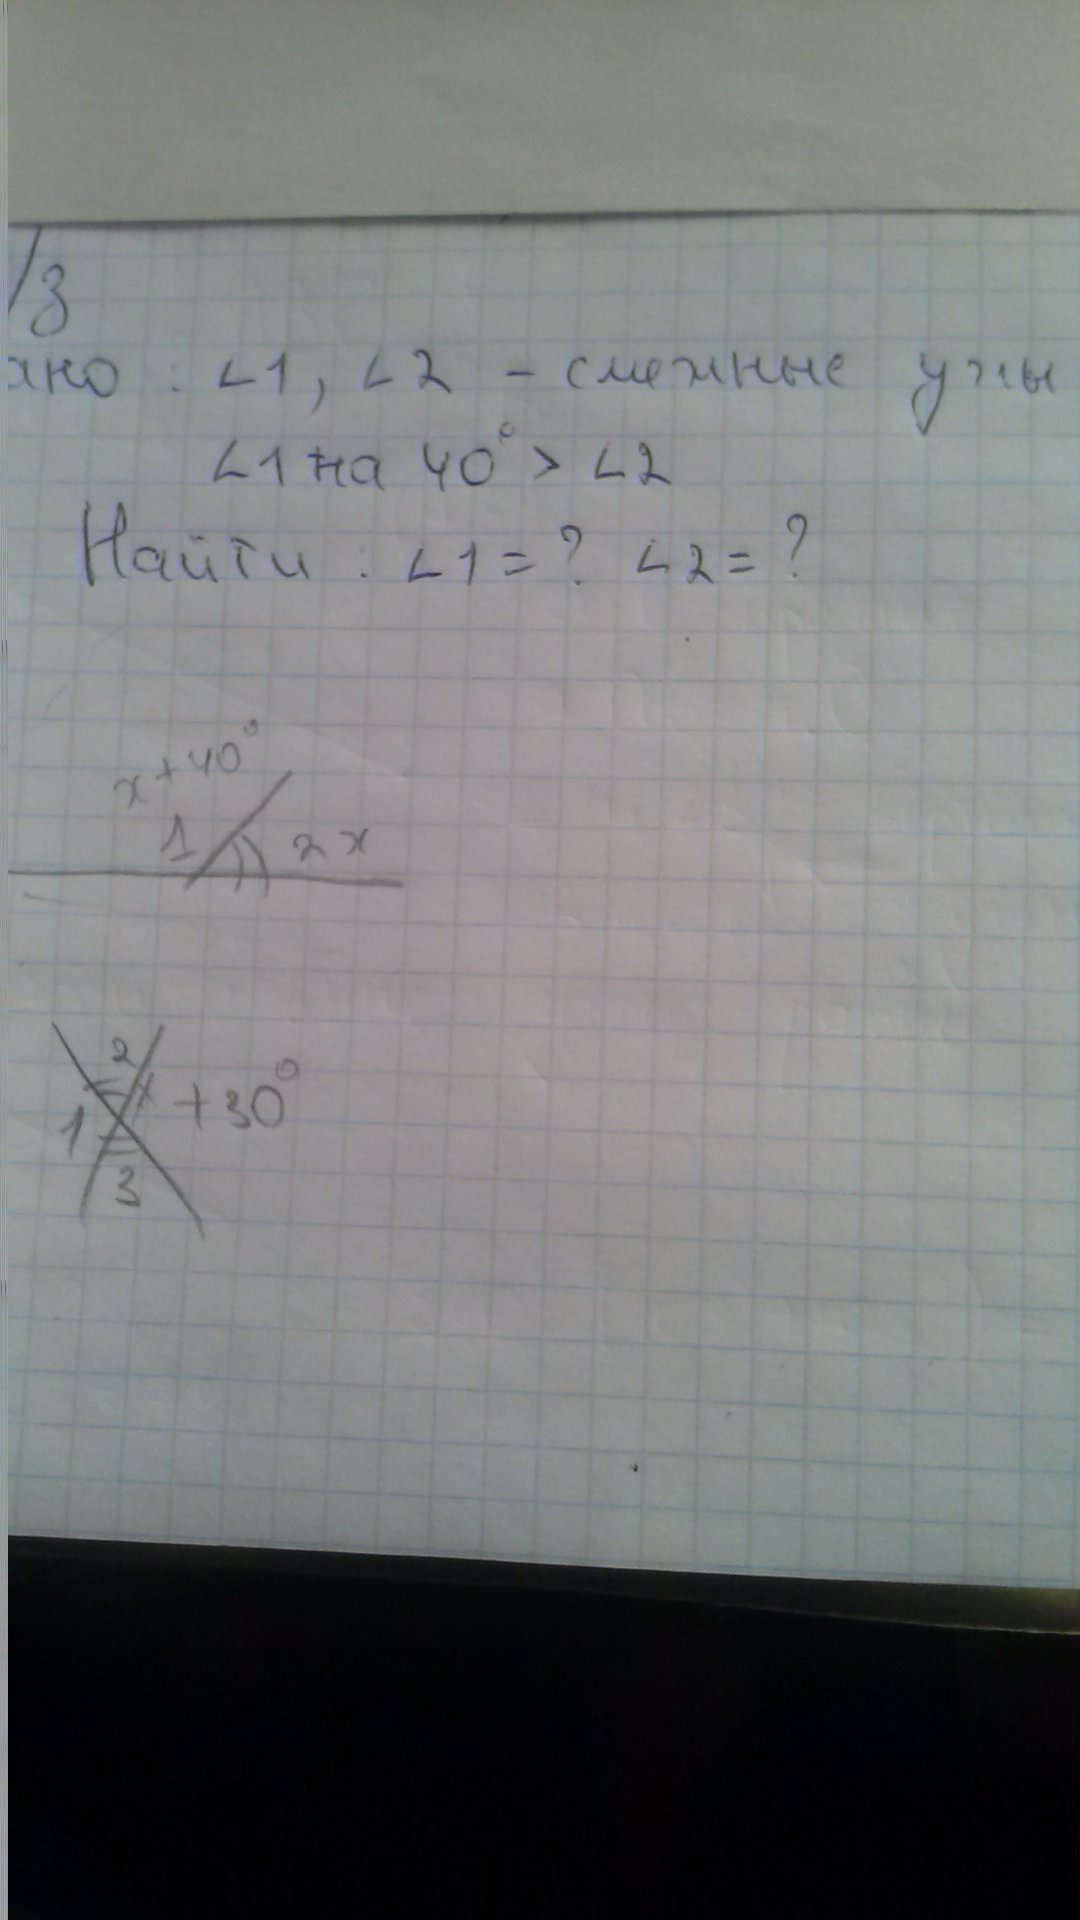 /з
ано : ∠1, ∠2 - смежные углы
∠1 на 40° > ∠2
Найти : ∠1 = ? ∠2 = ?
x + 40°
1 2 x
2
1 x + 30°
3